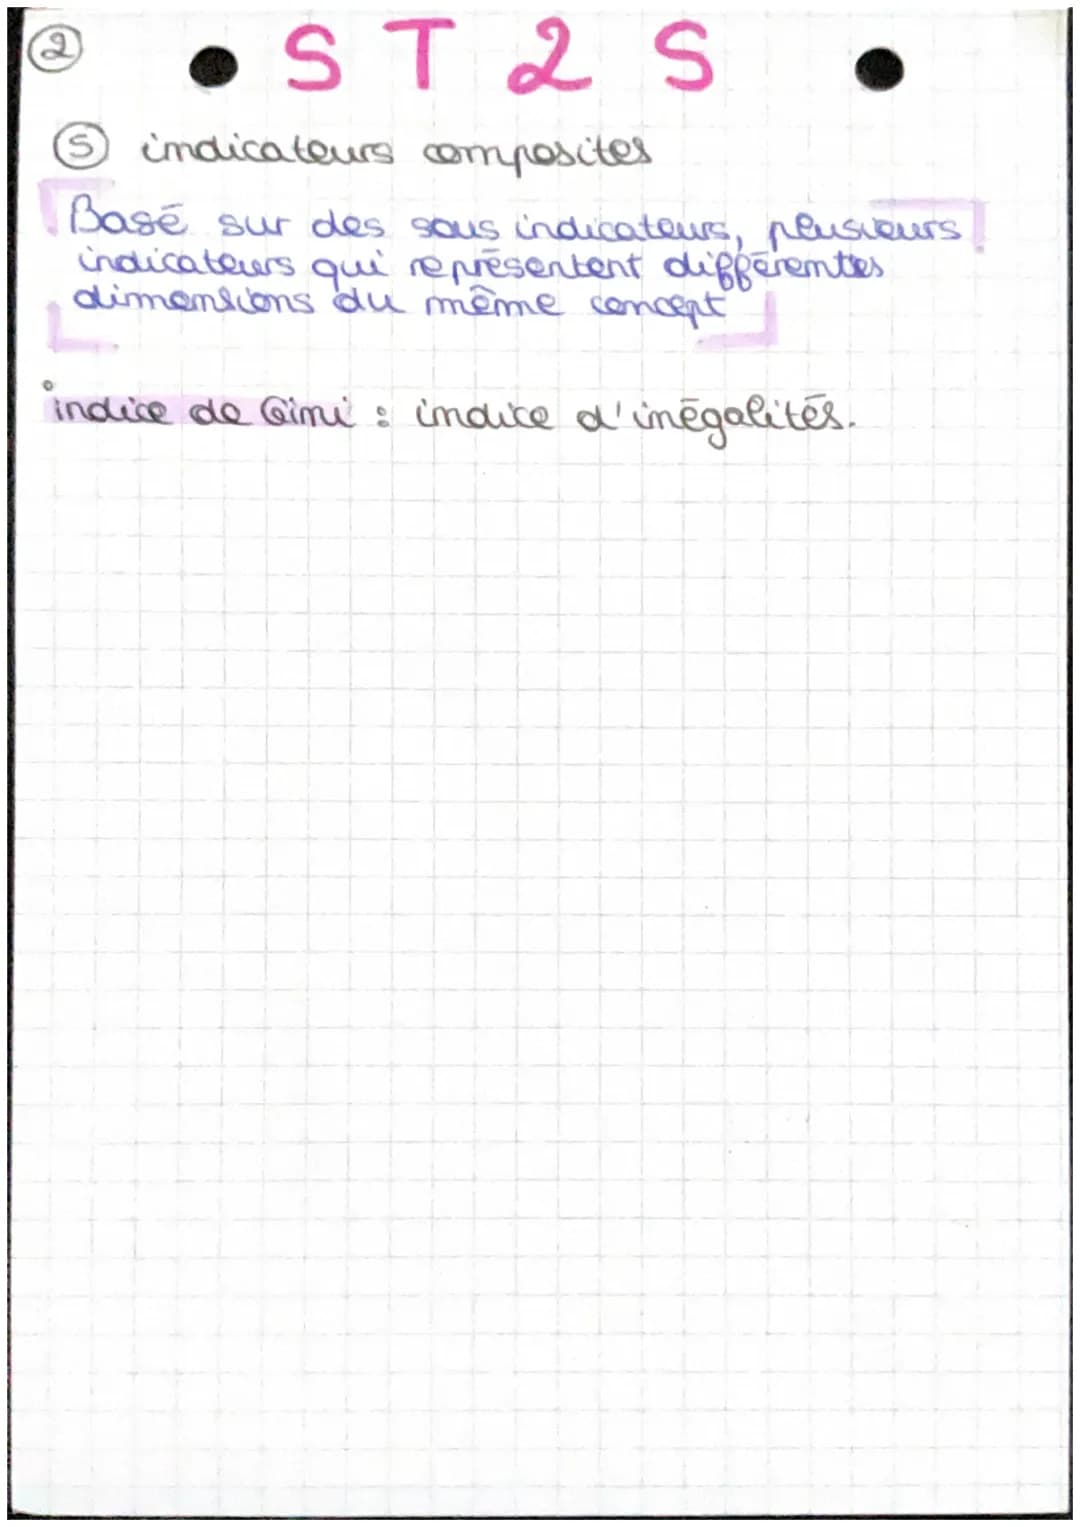 2
ST2S
5 indicateurs composites
Basé sur des sous indicateurs, plusieurs
indicateurs qui représentent différentes
dimensions du même concept
indice de Gini : indice d'inégalités.